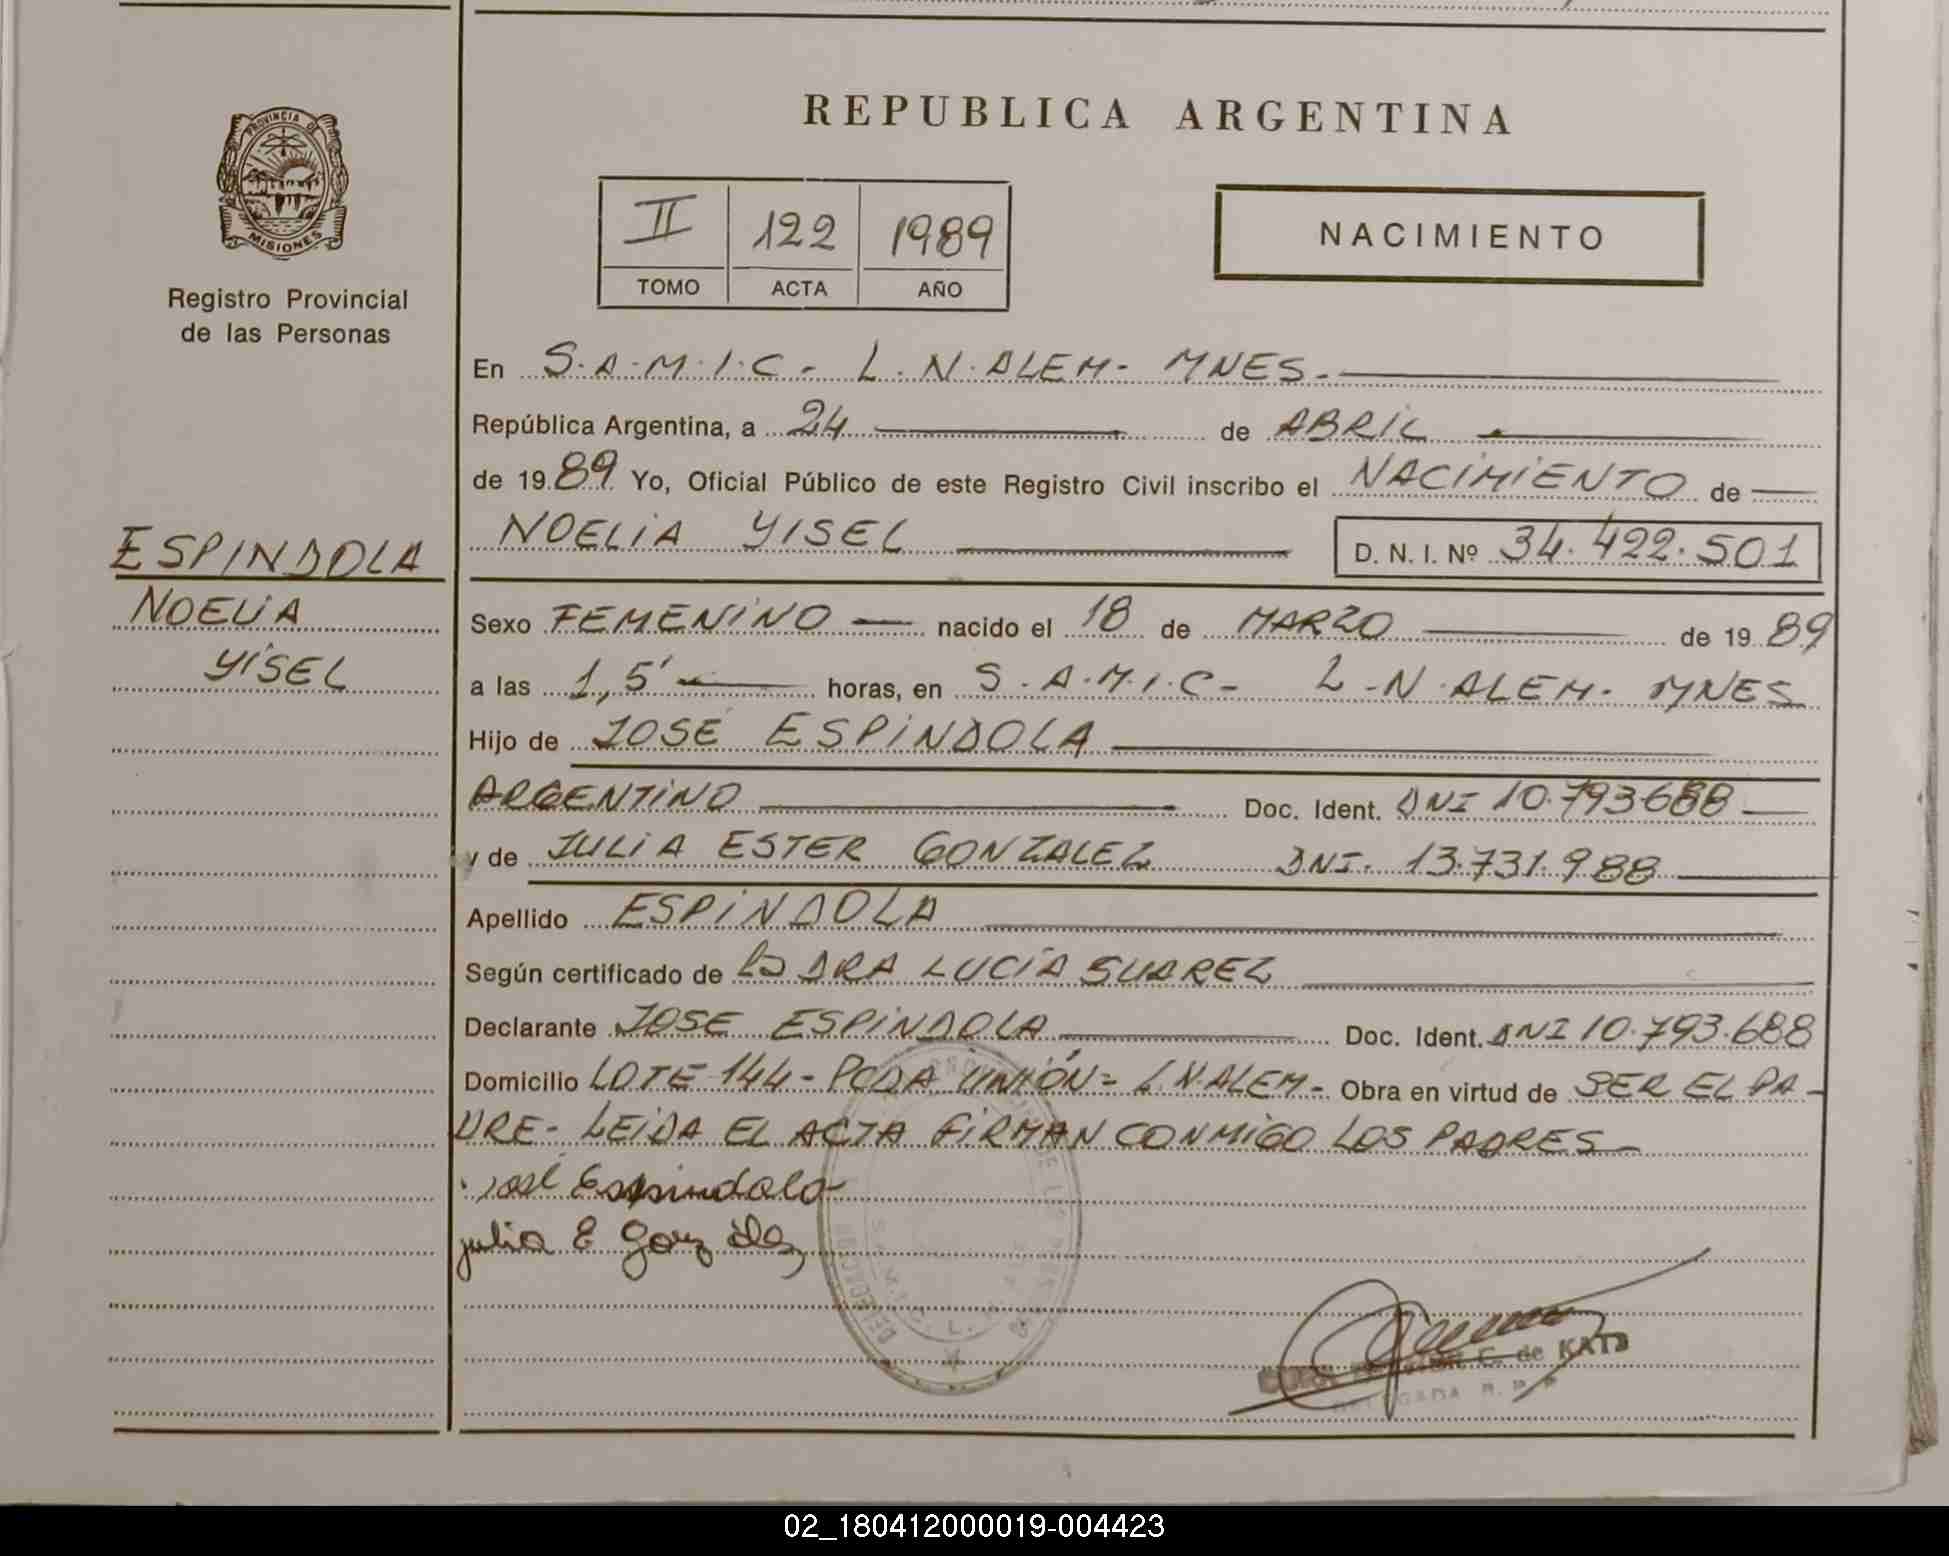 REPUBLICA ARGENTINA
PROVINCIA DE
MISIONES
Registro Provincial
de las Personas
II 122 1989
TOMO ACTA AÑO
NACIMIENTO
En S.A.M.I.C- L.N.ALEM- MNES.
República Argentina, a 24 de ABRIL
de 1989 Yo, Oficial Público de este Registro Civil inscribo el NACIMIENTO de
NOELIA YISEL D. N. I. Nº 34.422.501
ESPINDOLA
NOELIA
YISEL
Sexo FEMENINO nacido el 18 de MARZO de 1989
a las 1,5' horas, en S.A.M.I.C- L-N.ALEM. MNES
Hijo de JOSÉ ESPINDOLA
ARGENTINO Doc. Ident. DNI 10.793688
y de JULIA ESTER GONZALEZ DNI. 13.731.988
Apellido ESPINDOLA
Según certificado de DRA LUCÍA SUAREZ
Declarante JOSE ESPINDOLA Doc. Ident. DNI 10.793.688
Domicilio LOTE 144- PCDA UNIÓN- L.N.ALEM- Obra en virtud de SER EL PA-
DRE- LEIDA EL ACTA FIRMAN CONMIGO LOS PADRES
José Espindola
julia E Gonzalez
C. de KATZ
DELEGADA R. P. P
02_180412000019-004423